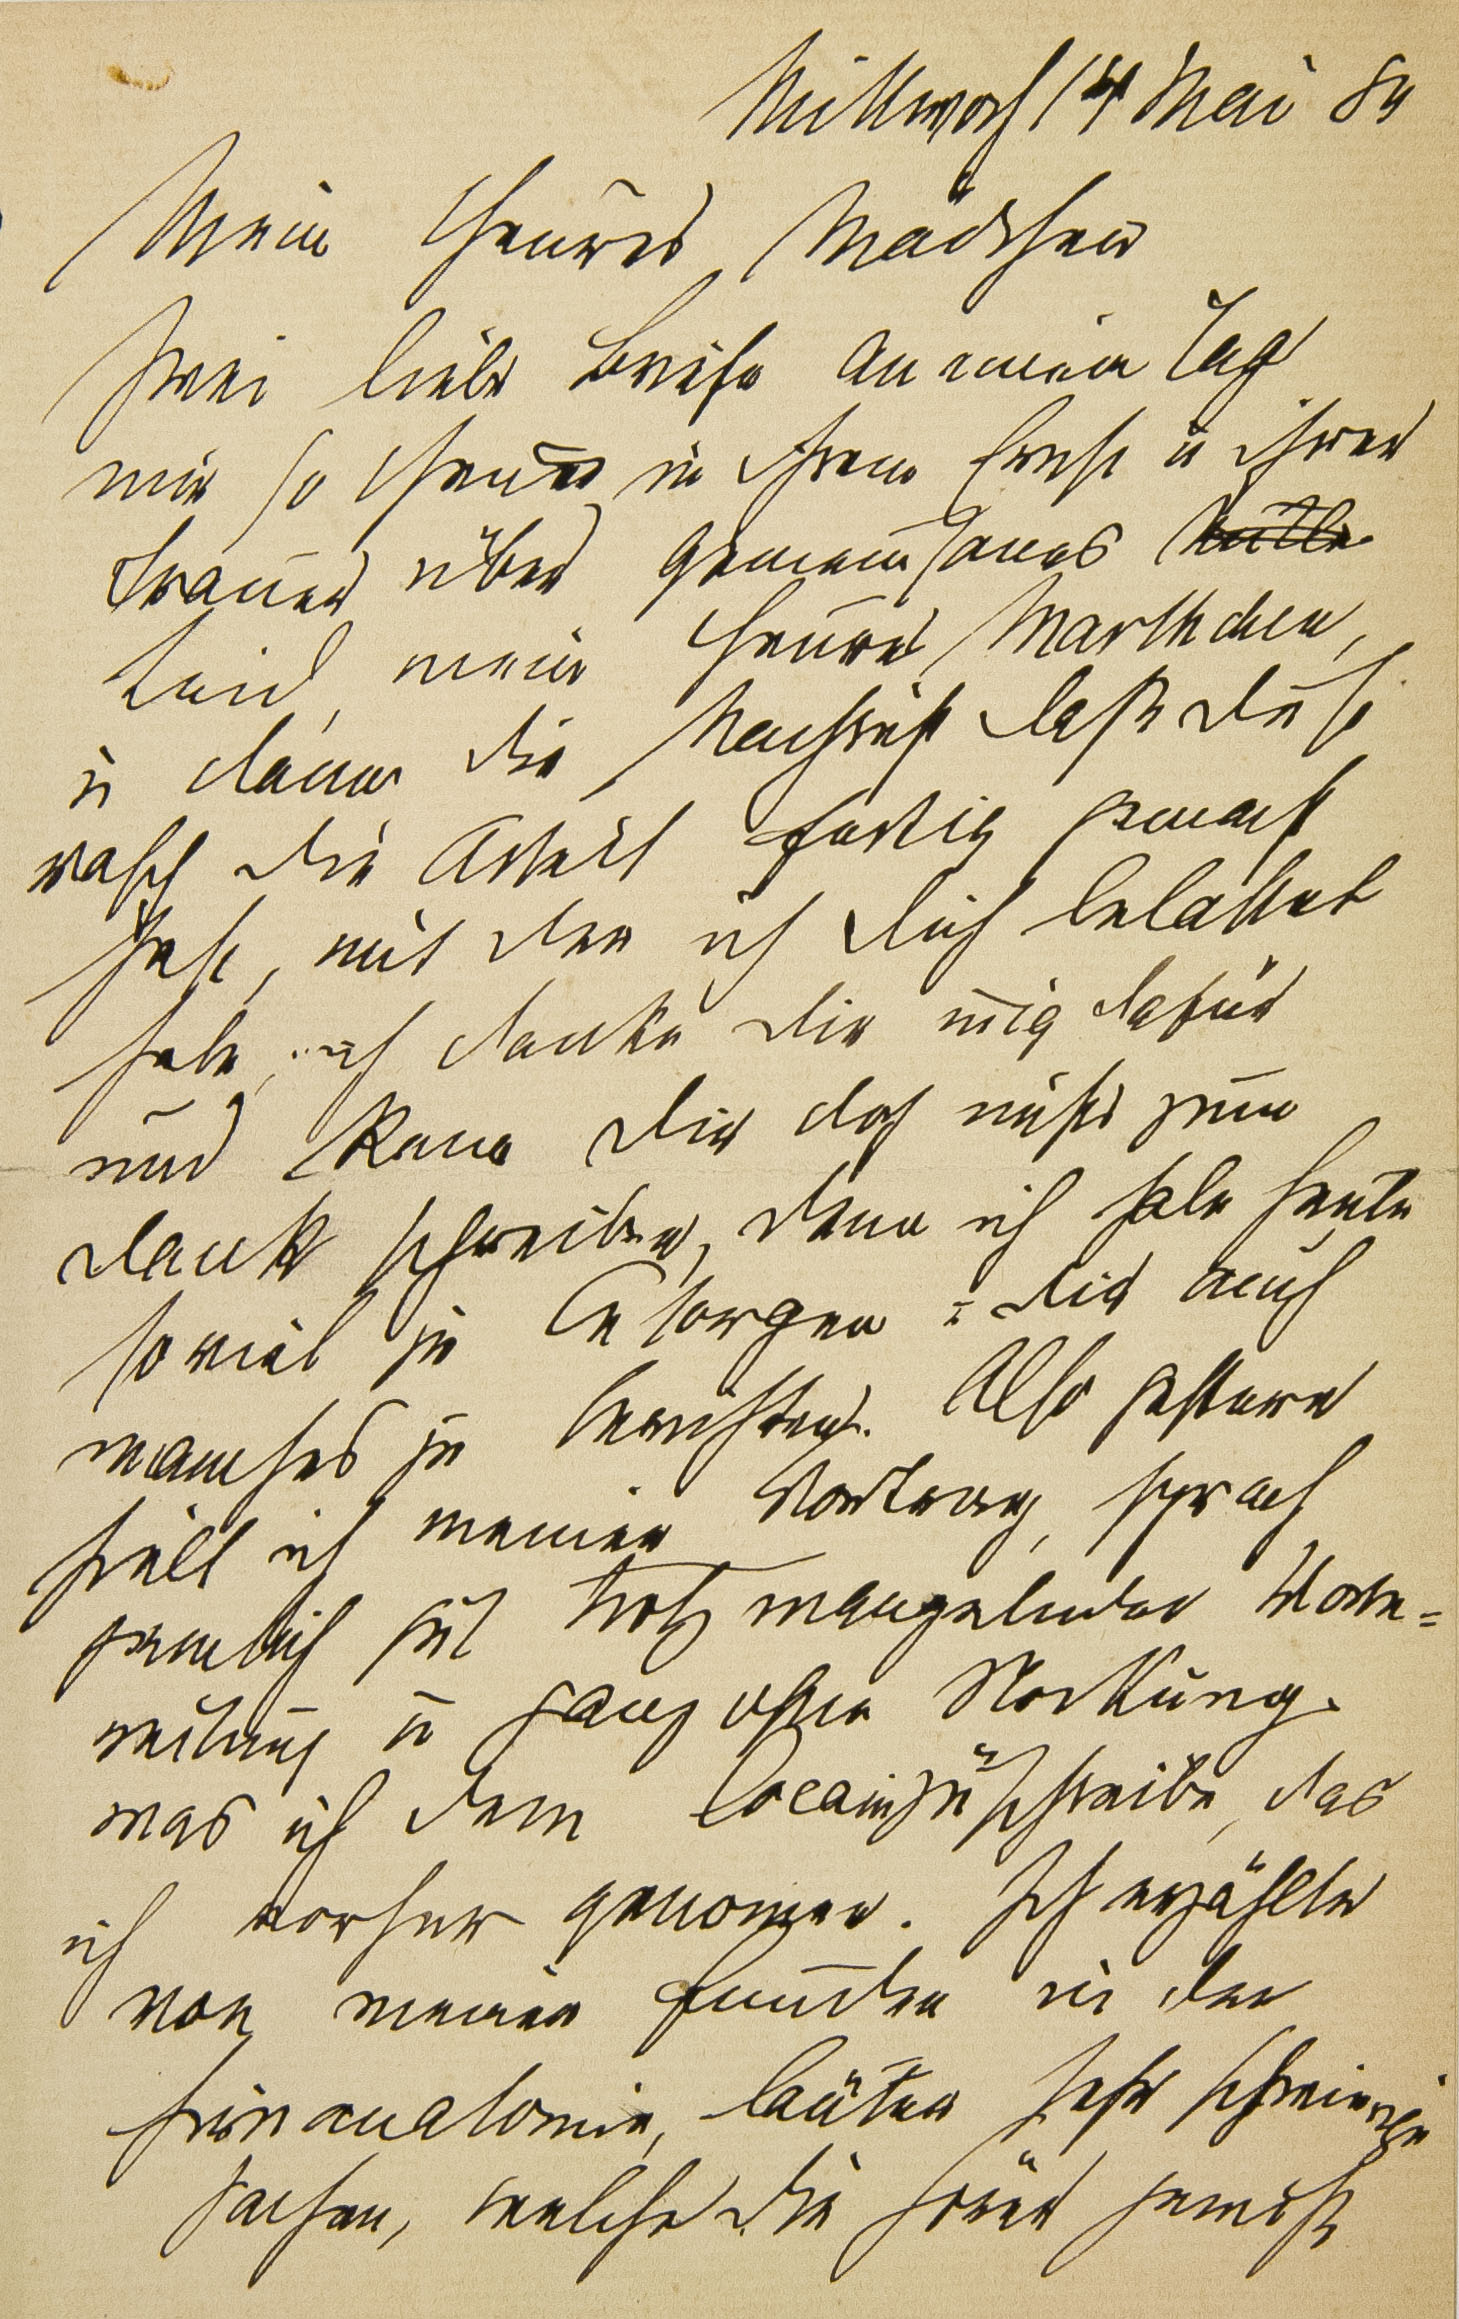 Mittwoch 14 Mai 84
Mein theures Mädchen
Zwei liebe Briefe an einem Tag
mir so theuer in ihrem Ernst u ihrer
Trauer über gemeinsames
Leid, mein theures Marthchen,
u dann die Nachricht daß du so
rasch die Arbeit fertig gemacht
hast, mit der ich dich belastet
habe, ich danke dir innig dafür
und kann dir doch nichts zum
Dank schreiben, denn ich habe heute
soviel zu besorgen u dir auch
manches zu berichten. Also gestern
hielt ich meinen Vortrag, sprach
ziemlich gut trotz mangelnder Vorbe=
reitung u ganz ohne Stockung.
was ich dem Cocain zuschreibe, das
ich vorher genommen. Ich erzählte
von meinen Funden in der
Hirnanatomie, lauter sehr schwierige
Sachen, welche die Hörer gewiß